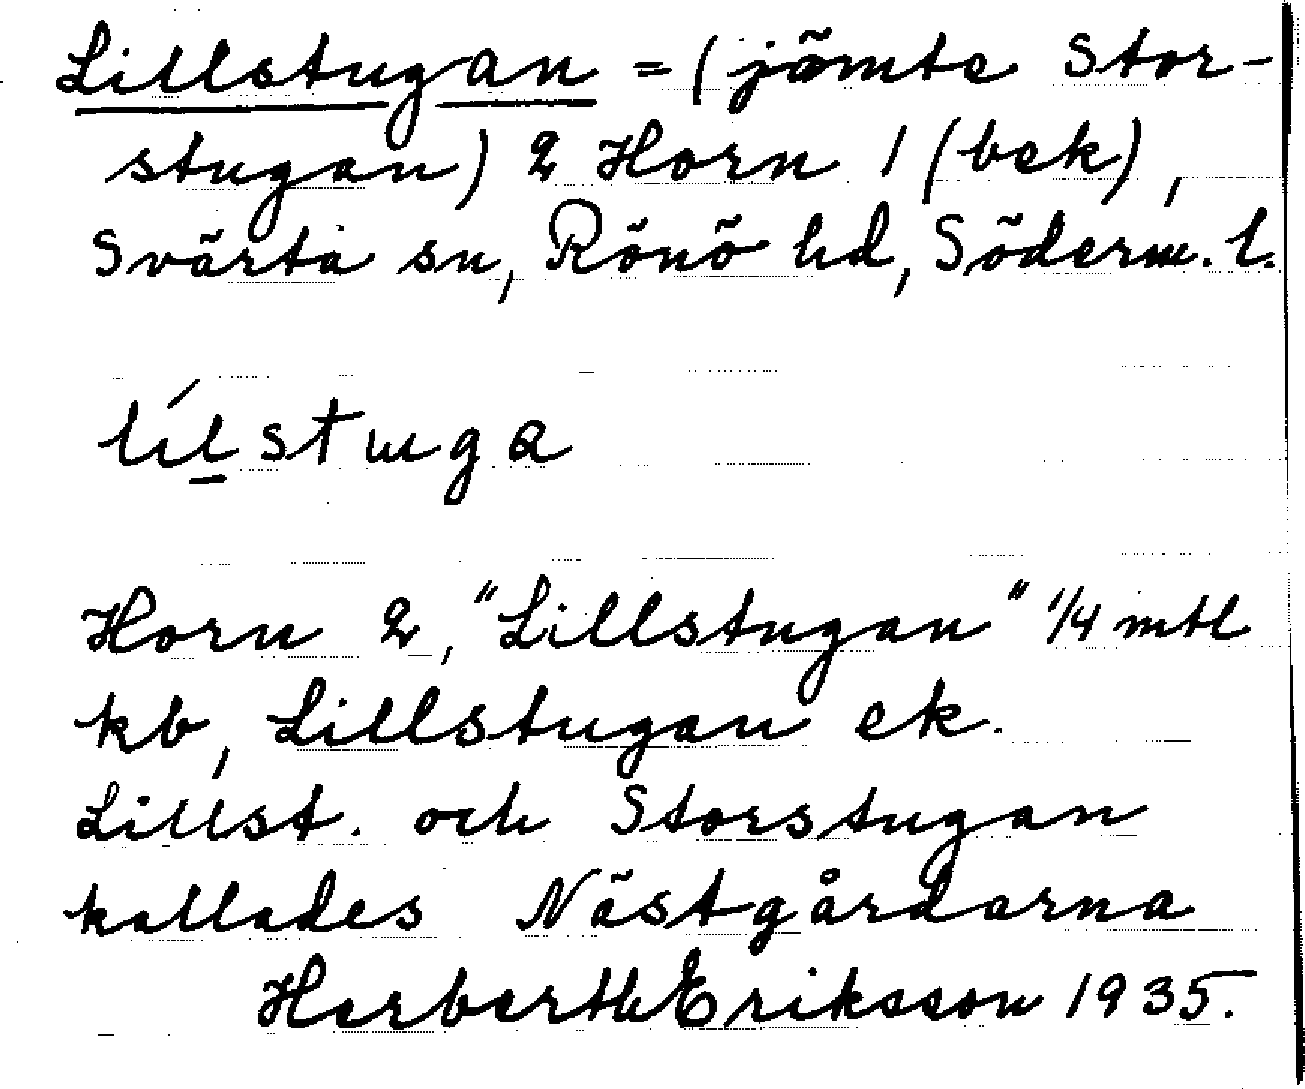 Lillstugan = (jämte Stor-
stugan) 2 Horn 1 (bek),
Svärta sn, Rönö hd, Söderm. l.
lílstɯga
Horn 2, "Lillstugan" 1/4 mtl
kb, Lillstugan ek.
Lillst. och Storstugan
kallades Nästgårdarna
Herberth Eriksson 1935.